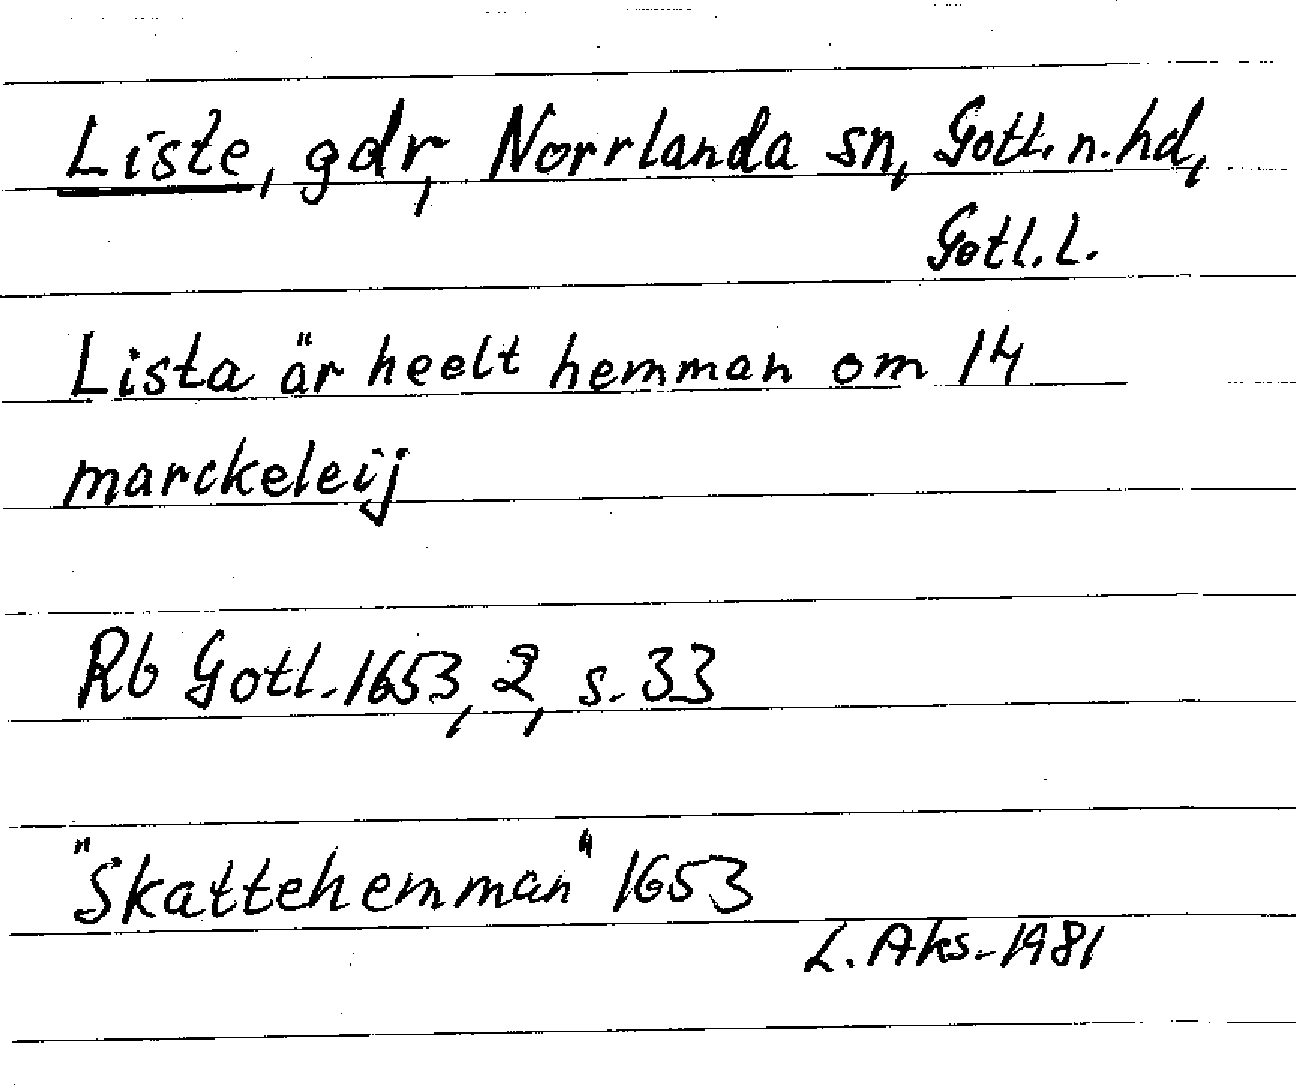 Liste, gdr, Norrlanda sn, Gotl. n. hd,
Gotl. l.
Lista är heelt hemman om 14
marckeleij
Rb Gotl. 1653, 2, s. 33
"Skattehemman" 1653
L. Aks. 1981